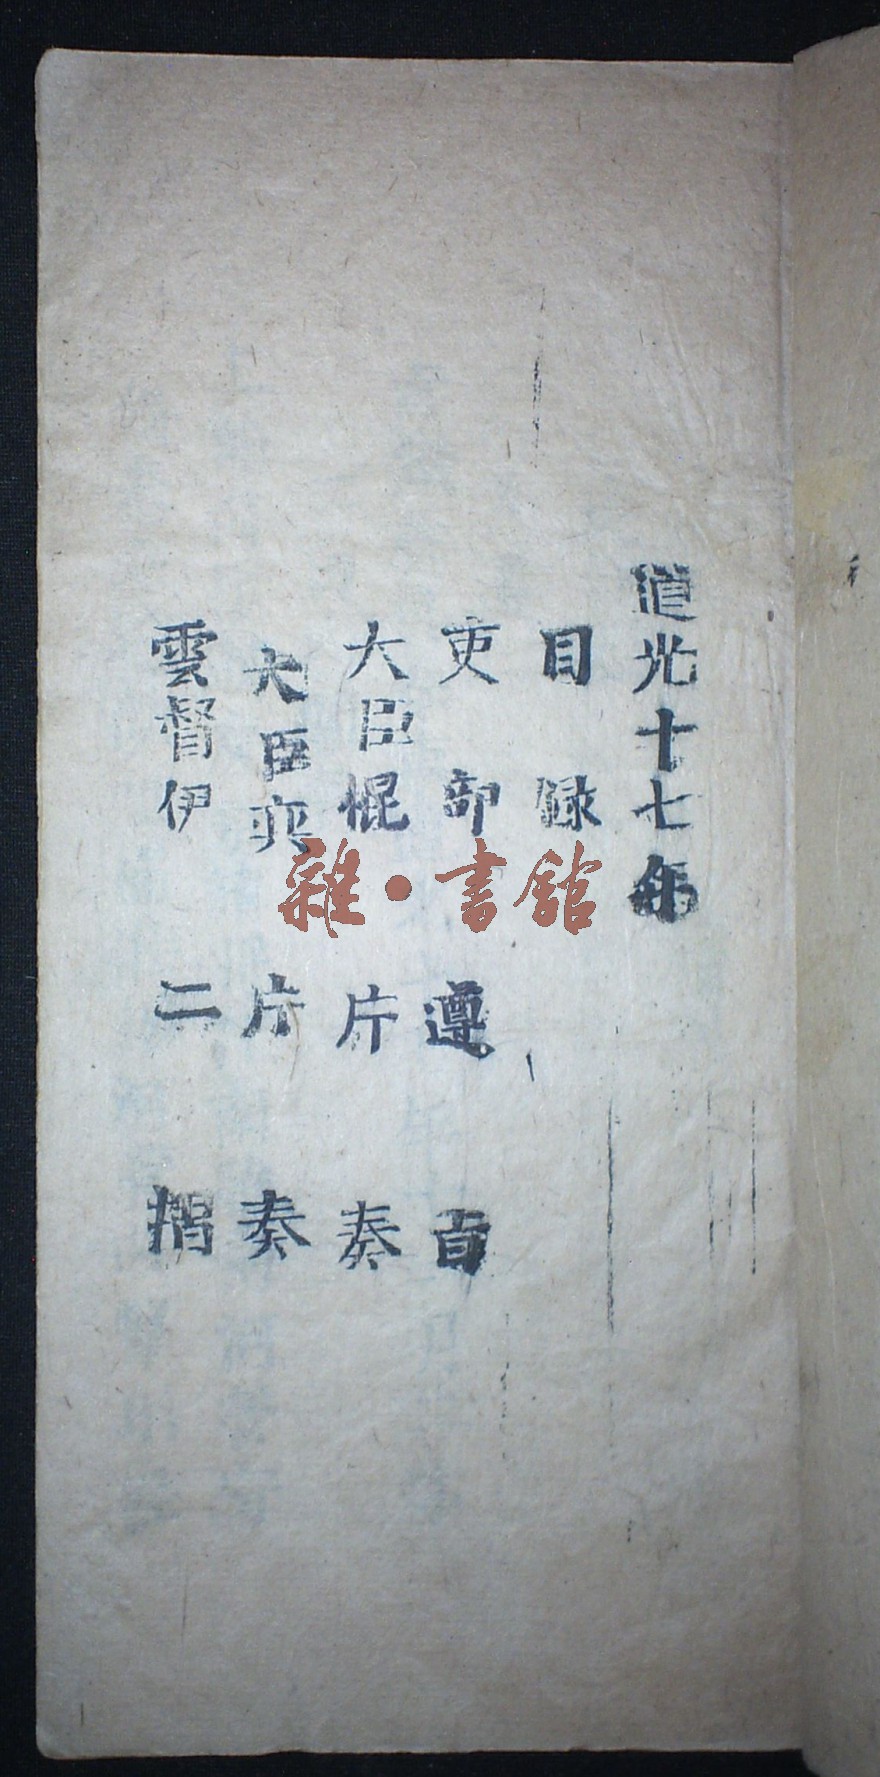 道光十七年
目録
吏部遵旨
大臣棍片奏
大臣奕片奏
雲督伊二摺
雜·書館